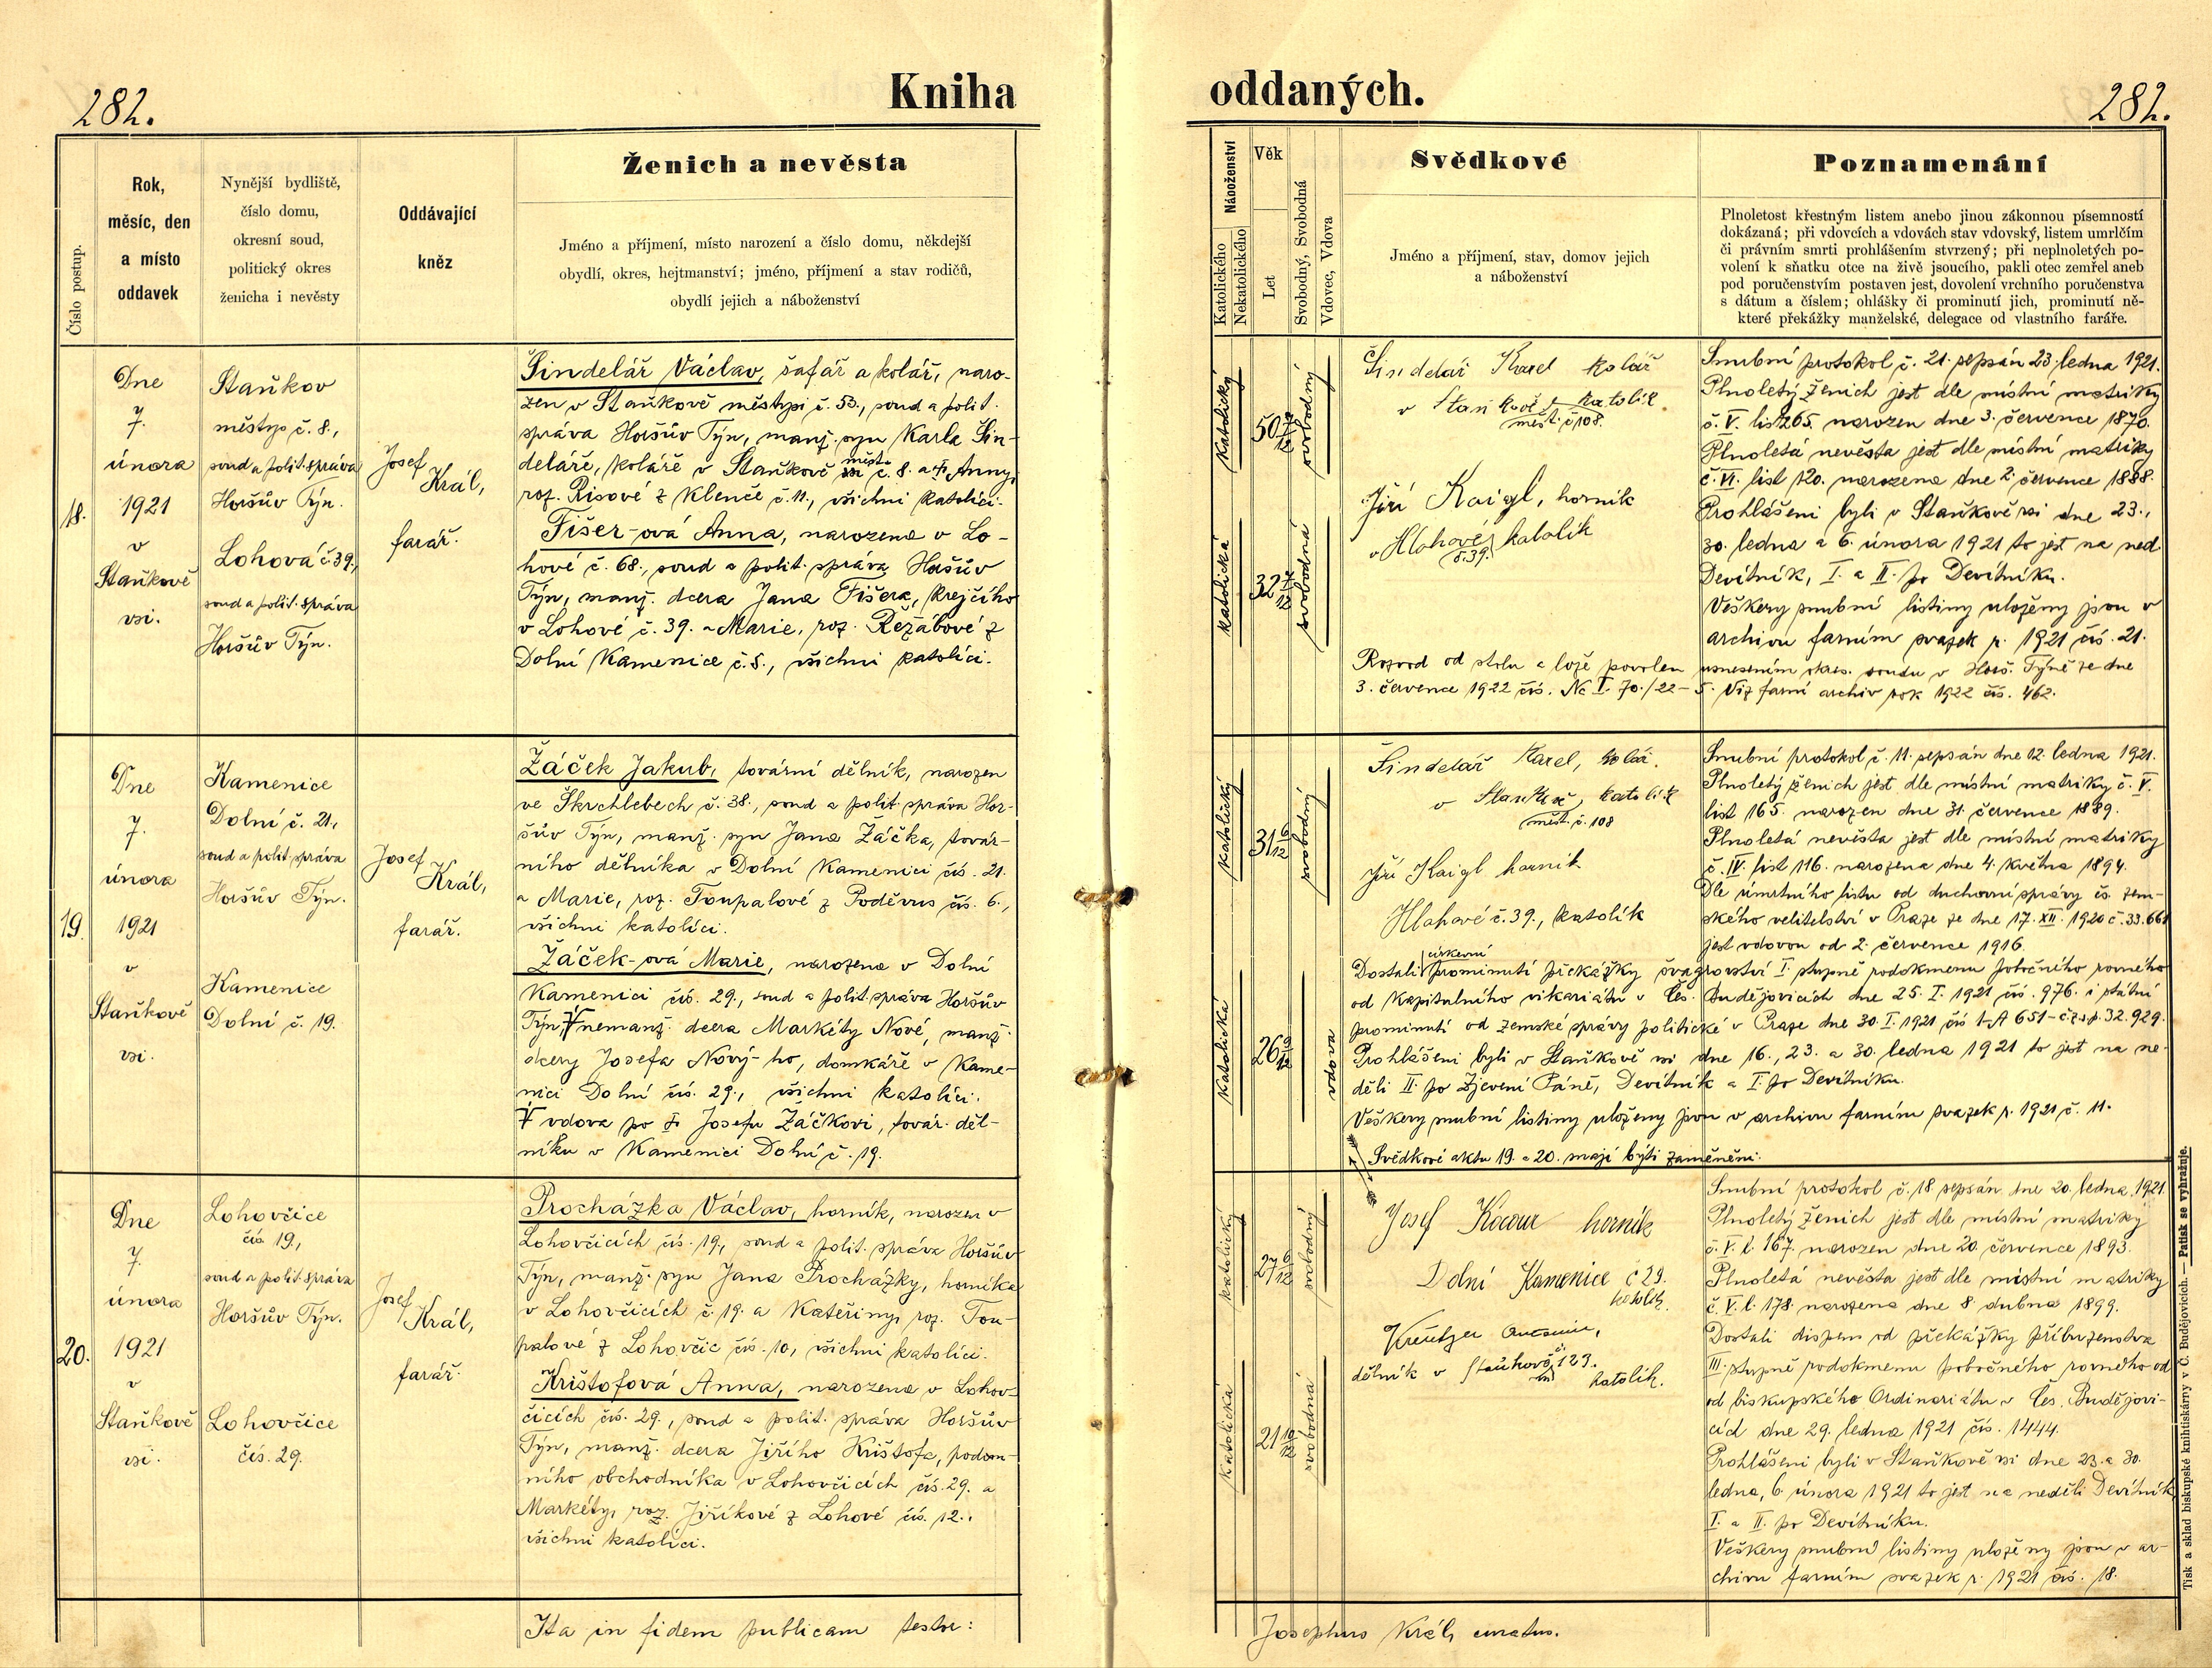 282.
Kniha
oddaných.
282.
Číslo postup.
Rok,
měsíc, den
a místo
oddavek
Nynější bydliště,
číslo domu,
okresní soud,
politický okres
ženicha i nevěsty
Oddávající
kněz
Ženich a nevěsta
Jméno a příjmení, místo narození a číslo domu, někdejší
obydlí, okres, hejtmanství; jméno, příjmení a stav rodičů,
obydlí jejich a náboženství
Náboženství
Katolického
Nekatolického
Věk
Let
Svobodný, Svobodná
Vdovec, Vdova
Svědkové
Jméno a příjmení, stav, domov jejich
a náboženství
Poznamenání
Plnoletost křestným listem anebo jinou zákonnou písemností
dokázaná; při vdovcích a vdovách stav vdovský, listem umrlčím
či právním smrti prohlášením stvrzený; při neplnoletých po-
volení k sňatku otce na živě jsoucího, pakli otec zemřel aneb
pod poručenstvím postaven jest, dovolení vrchního poručenstva
s dátum a číslem; ohlášky či prominutí jich, prominutí ně-
které překážky manželské, delegace od vlastního faráře.
18.
Dne
7.
února
1921
v
Staňkově
vsi.
Staňkov
městys č. 8.,
soud a polit. správa
Horšův Týn.
Lohová č. 39.,
soud a polit. správa
Horšův Týn.
Josef
Král,
farář.
Šindelář Václav, šafář a kolář, naro-
zen v Staňkově městysi č. 53., soud a polit.
správa Horšův Týn, manž. syn Karla Šin-
deláře, koláře v Staňkově městs. č. 8. a † Anny,
roz. Risové z Klenče č. 11., všichni katolíci.
Fišer-ová Anna, narozena v Lo-
hové č. 68., soud a polit. správa Horšův
Týn, manž. dcera Jana Fišera, krejčího
v Lohové č. 39. a Marie, roz. Řežábové z
Dolní Kamenice č. 5., všichni katolíci.
katolický
50 7/12
svobodný
katolická
32 7/12
svobodná
Šindelář Karel kolář
v Staňkově katolík
měst. č 108.
Jiří Kaigl, horník
v Hlohové katolík
č. 39.
Snubní protokol č. 21. sepsán 23. ledna 1921.
Plnoletý ženich jest dle místní matriky
č. V. list 265. narozen dne 3. července 1870.
Plnoletá nevěsta jest dle místní matriky
č. VI. list 120. narozena dne 2. července 1888.
Prohlášeni byli v Staňkově vsi dne 23.,
30. ledna a 6. února 1921 to jest na ned.
Devítník, I. a II. po Devítníku.
Veškery snubní listiny uloženy jsou v
archivu farním svazek r. 1921 čís. 21.
Rozvod od stolu a lože povolen usnesením okres. soudu v Horš. Týně ze dne
3. července 1922 čís. Nc I. 70./22-5. Viz farní archiv rok 1922 čís. 462.
19.
Dne
7.
února
1921
v
Staňkově
vsi.
Kamenice
Dolní č. 21,
soud a polit. správa
Horšův Týn.
Kamenice
Dolní č. 19.
Josef
Král,
farář.
Žáček Jakub, tovární dělník, narozen
ve Škrchlebech č. 38., soud a polit. správa Hor-
šův Týn, manž. syn Jana Žáčka, továr-
ního dělníka v Dolní Kamenici čís. 21.
a Marie, roz. Toupalové z Poděvus čís. 6.,
všichni katolíci.
Žáček-ová Marie, narozena v Dolní
Kamenici čís. 29., soud a polit. správa Horšův
Týn, nemanž. dcera Markéty Nové, manž.
dcery Josefa Nový-ho, domkáře v Kame-
nici Dolní čís. 29., všichni katolíci.
vdova po † Josefu Žáčkovi, továr. děl-
níku v Kamenici Dolní č. 19.
katolický
31 6/12
svobodný
katolická
26 9/12
vdova
Šindelář Karel, kolář.
v Staňkově, katolík
měst. č. 108
Jiří Kaigl horník
Hlohové č. 39., katolík
Snubní protokol č. 11. sepsán dne 12. ledna 1921.
Plnoletý ženich jest dle místní matriky č. V.
list 165. narozen dne 31. července 1889.
Plnoletá nevěsta jest dle místní matriky
č. IV. list 116. narozena dne 4. května 1894.
Dle úmrtního listu od duchovní správy čs. zem-
ského velitelství v Praze ze dne 17. XII. 1920 č. 33.661
jest vdovou od 2. července 1916.
církevní
Dostali prominutí překážky švagrovství I. stupně rodokmenu pobočného rovného
od Kapitulního vikariátu v Čes. Budějovicích dne 25. I. 1921 čís. 976. i státní
prominutí od zemské správy politické v Praze dne 30. I. 1921 čís 1-A 651-č.z.s.p. 32.929.
Prohlášeni byli v Staňkově vsi dne 16., 23. a 30. ledna 1921 to jest na ne-
děli II. po Zjevení Páně, Devítník a I. po Devítníku.
Veškery snubní listiny uloženy jsou v archivu farním svazek r. 1921 č. 11.
Svědkové aktu 19. a 20. mají býti zaměněni.
20.
Dne
7.
února
1921
v
Staňkově
vsi.
Lohovčice
čís 19.,
soud a polit. správa
Horšův Týn.
Lohovčice
čís. 29.
Josef
Král,
farář.
Procházka Václav, horník, narozen v
Lohovčicích čís. 19., soud a polit. správa Horšův
Týn, manž. syn Jana Procházky, horníka
v Lohovčicích č. 19. a Kateřiny, roz. Tou-
palové z Lohovčic čís. 10, všichni katolíci.
Krištofová Anna, narozena v Lohov-
čicích čís. 29., soud a polit. správa Horšův
Týn, manž. dcera Jiřího Krištofa, podom-
ního obchodníka v Lohovčicích čís. 29. a
Markéty, roz. Jiříkové z Lohové čís. 12.,
všichni katolíci.
katolický
27 6/12
svobodný
katolická
21 10/12
svobodná
Josef Kocour horník
Dolní Kamenice č 29.
katolík.
Kreutzer Antonín,
dělník v Staňkově č. 123.
vsi katolík.
Snubní protokol č. 18 sepsán dne 20. ledna 1921.
Plnoletý ženich jest dle místní matriky
č. V. l. 167. narozen dne 20. července 1893.
Plnoletá nevěsta jest dle místní matriky
č. V. l. 178. narozena dne 8. dubna 1899.
Dostali dispens od překážky příbuzenstva
III. stupně rodokmenu pobočného rovného od
od biskupského Ordinariátu v Čes. Budějovi-
cíd dne 29. ledna 1921 čís. 1444.
Prohlášeni byli v Staňkově vsi dne 23. a 30.
ledna, 6. února 1921 to jest na neděli Devítník,
I. a II. po Devítníku.
Veškery snubní listiny uloženy jsou v ar-
chivu farním svazek r. 1921 čís. 18.
Ita in fidem publicam testor:
Josephus Král, curatus.
Tisk a sklad biskupské knihtiskárny v Č. Budějovicích. — Patisk se vyhražuje.